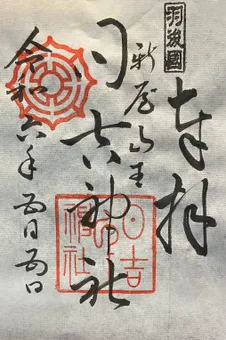 羽後國
奉拝
新屋山王
日吉神社
日吉
神社
令和六年五月五日